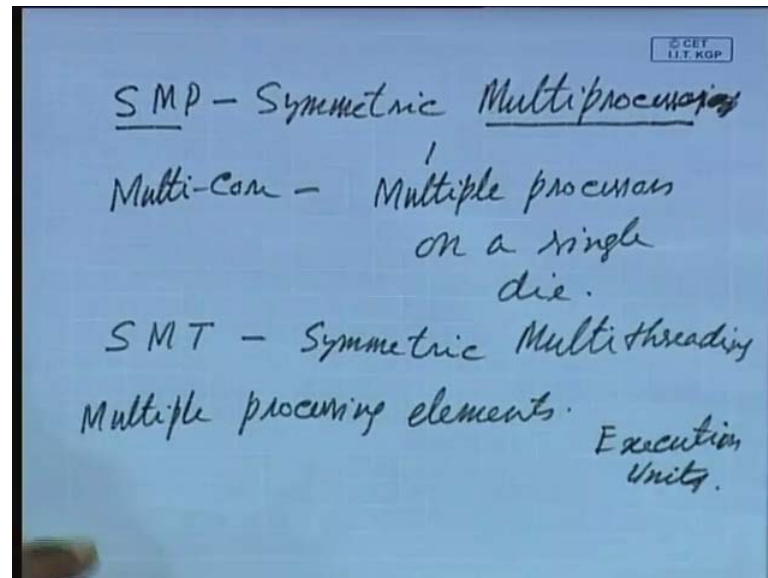 © CET
I.I.T. KGP
SMP - Symmetric Multiprocessing
Multi-Core - Multiple processors
on a single
die.
SMT - Symmetric Multithreading
Multiple processing elements.
Execution
Units.